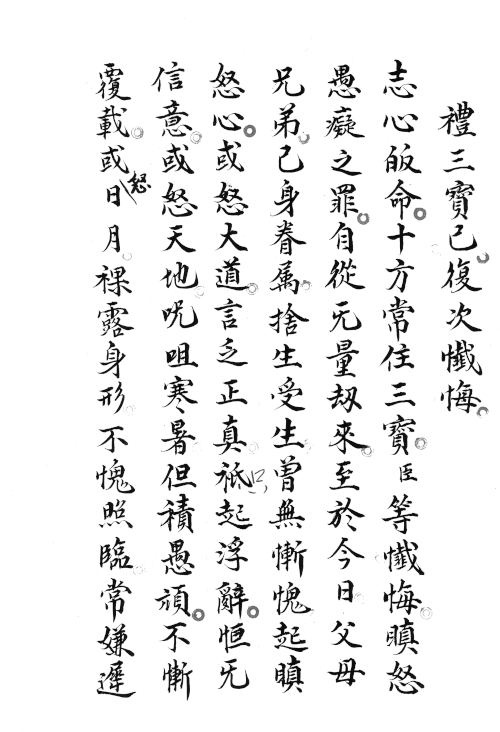 禮三寳已復次懺悔
志心皈命十方常住三寳臣等懺悔瞋怒
愚癡之罪自從无量刼來至於今日父母
兄弟己身眷属捨生受生曽無慚愧起瞋
怒心或怒大道言乏正真衹起浮辭恒无
信意或怒天地呪咀寒暑但積愚頑不慚
覆載或怒日月裸露身形不愧照臨常嫌遲